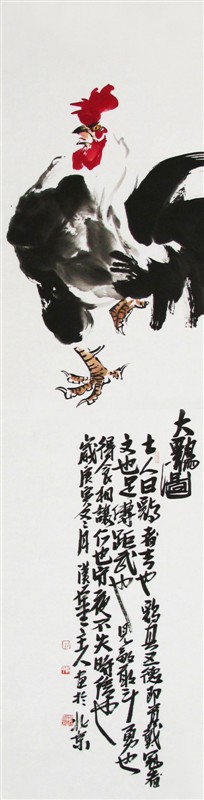 大鷄圖
士人曰鷄者吉也鷄具五德即首戴冠者
文也足傅距武也見敵敢斗勇也
得食相讓仁也守夜不失時信也
歲庚寅冬月漢主人畫於北京